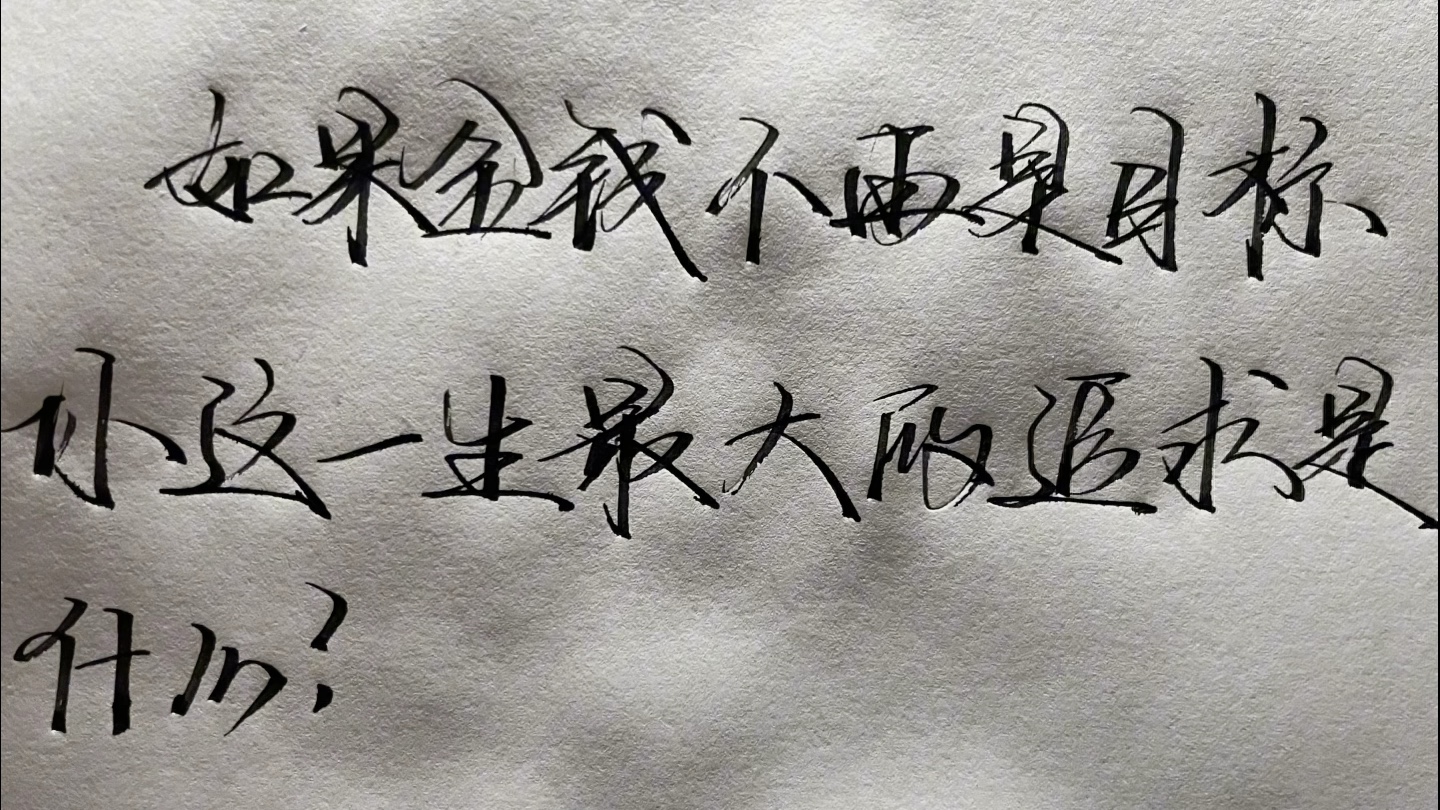 如果金钱不再是目标
你这一生最大的追求是
什么?